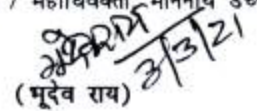 / महाधिवक्ता माननीय उच
3/3/21
(भूदेव राय)